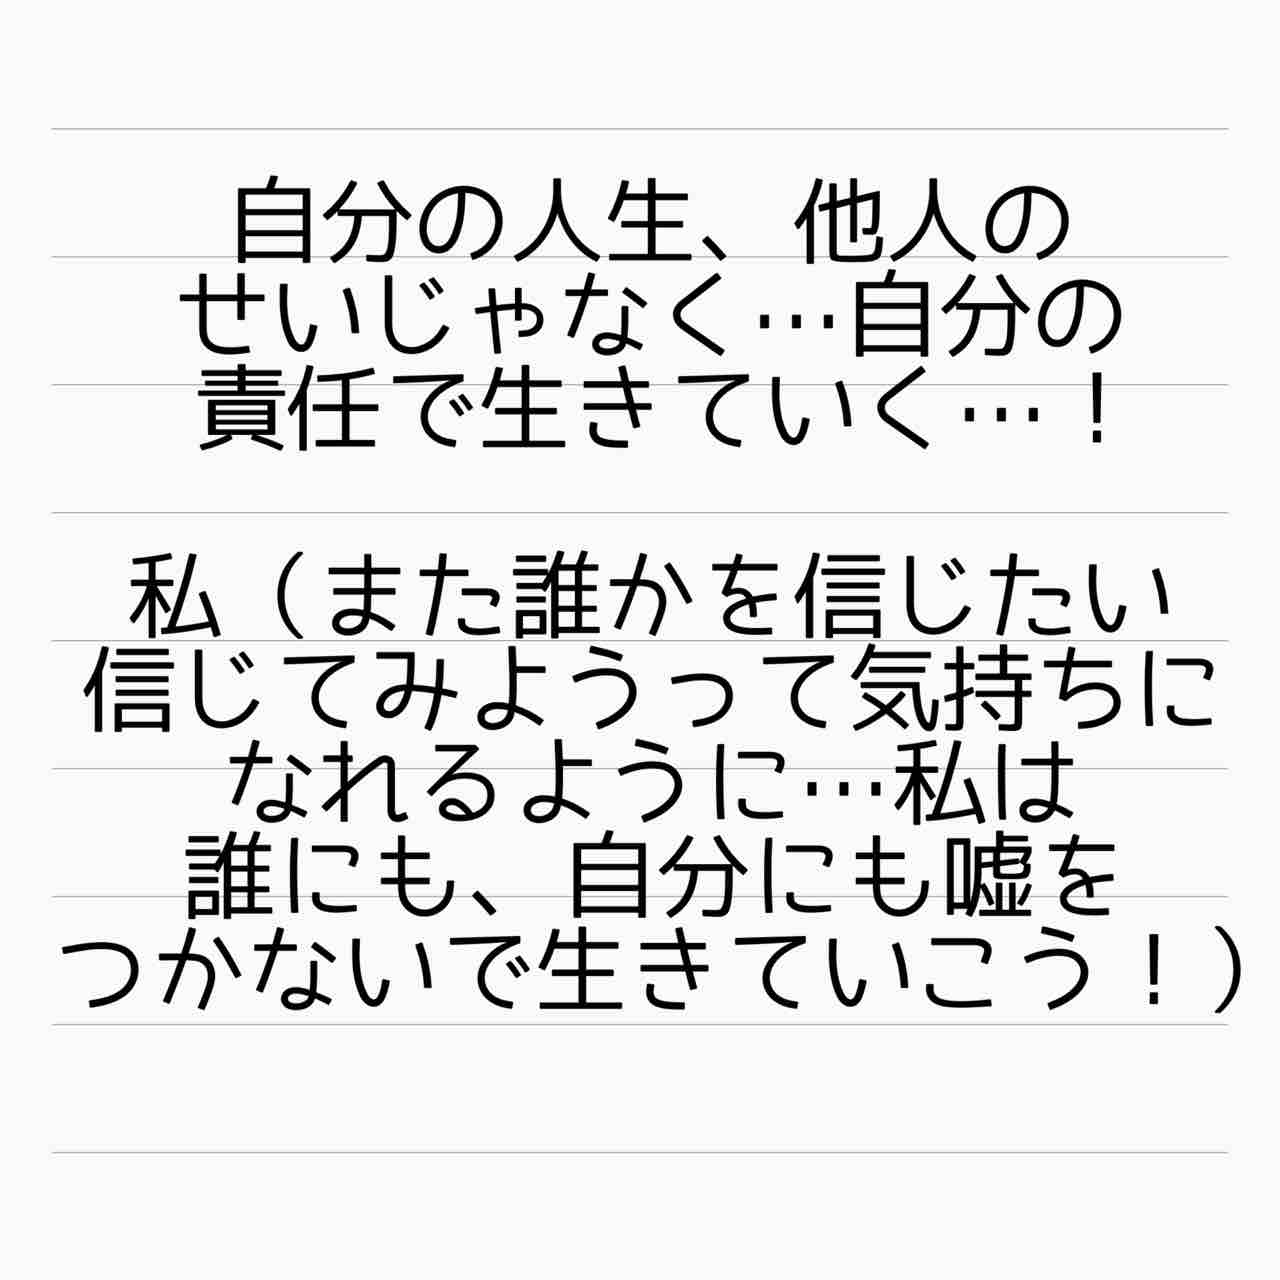 自分の人生、他人の
せいじゃなく…自分の
責任で生きていく…！
私（また誰かを信じたい
信じてみようって気持ちに
なれるように…私は
誰にも、自分にも嘘を
つかないで生きていこう！）